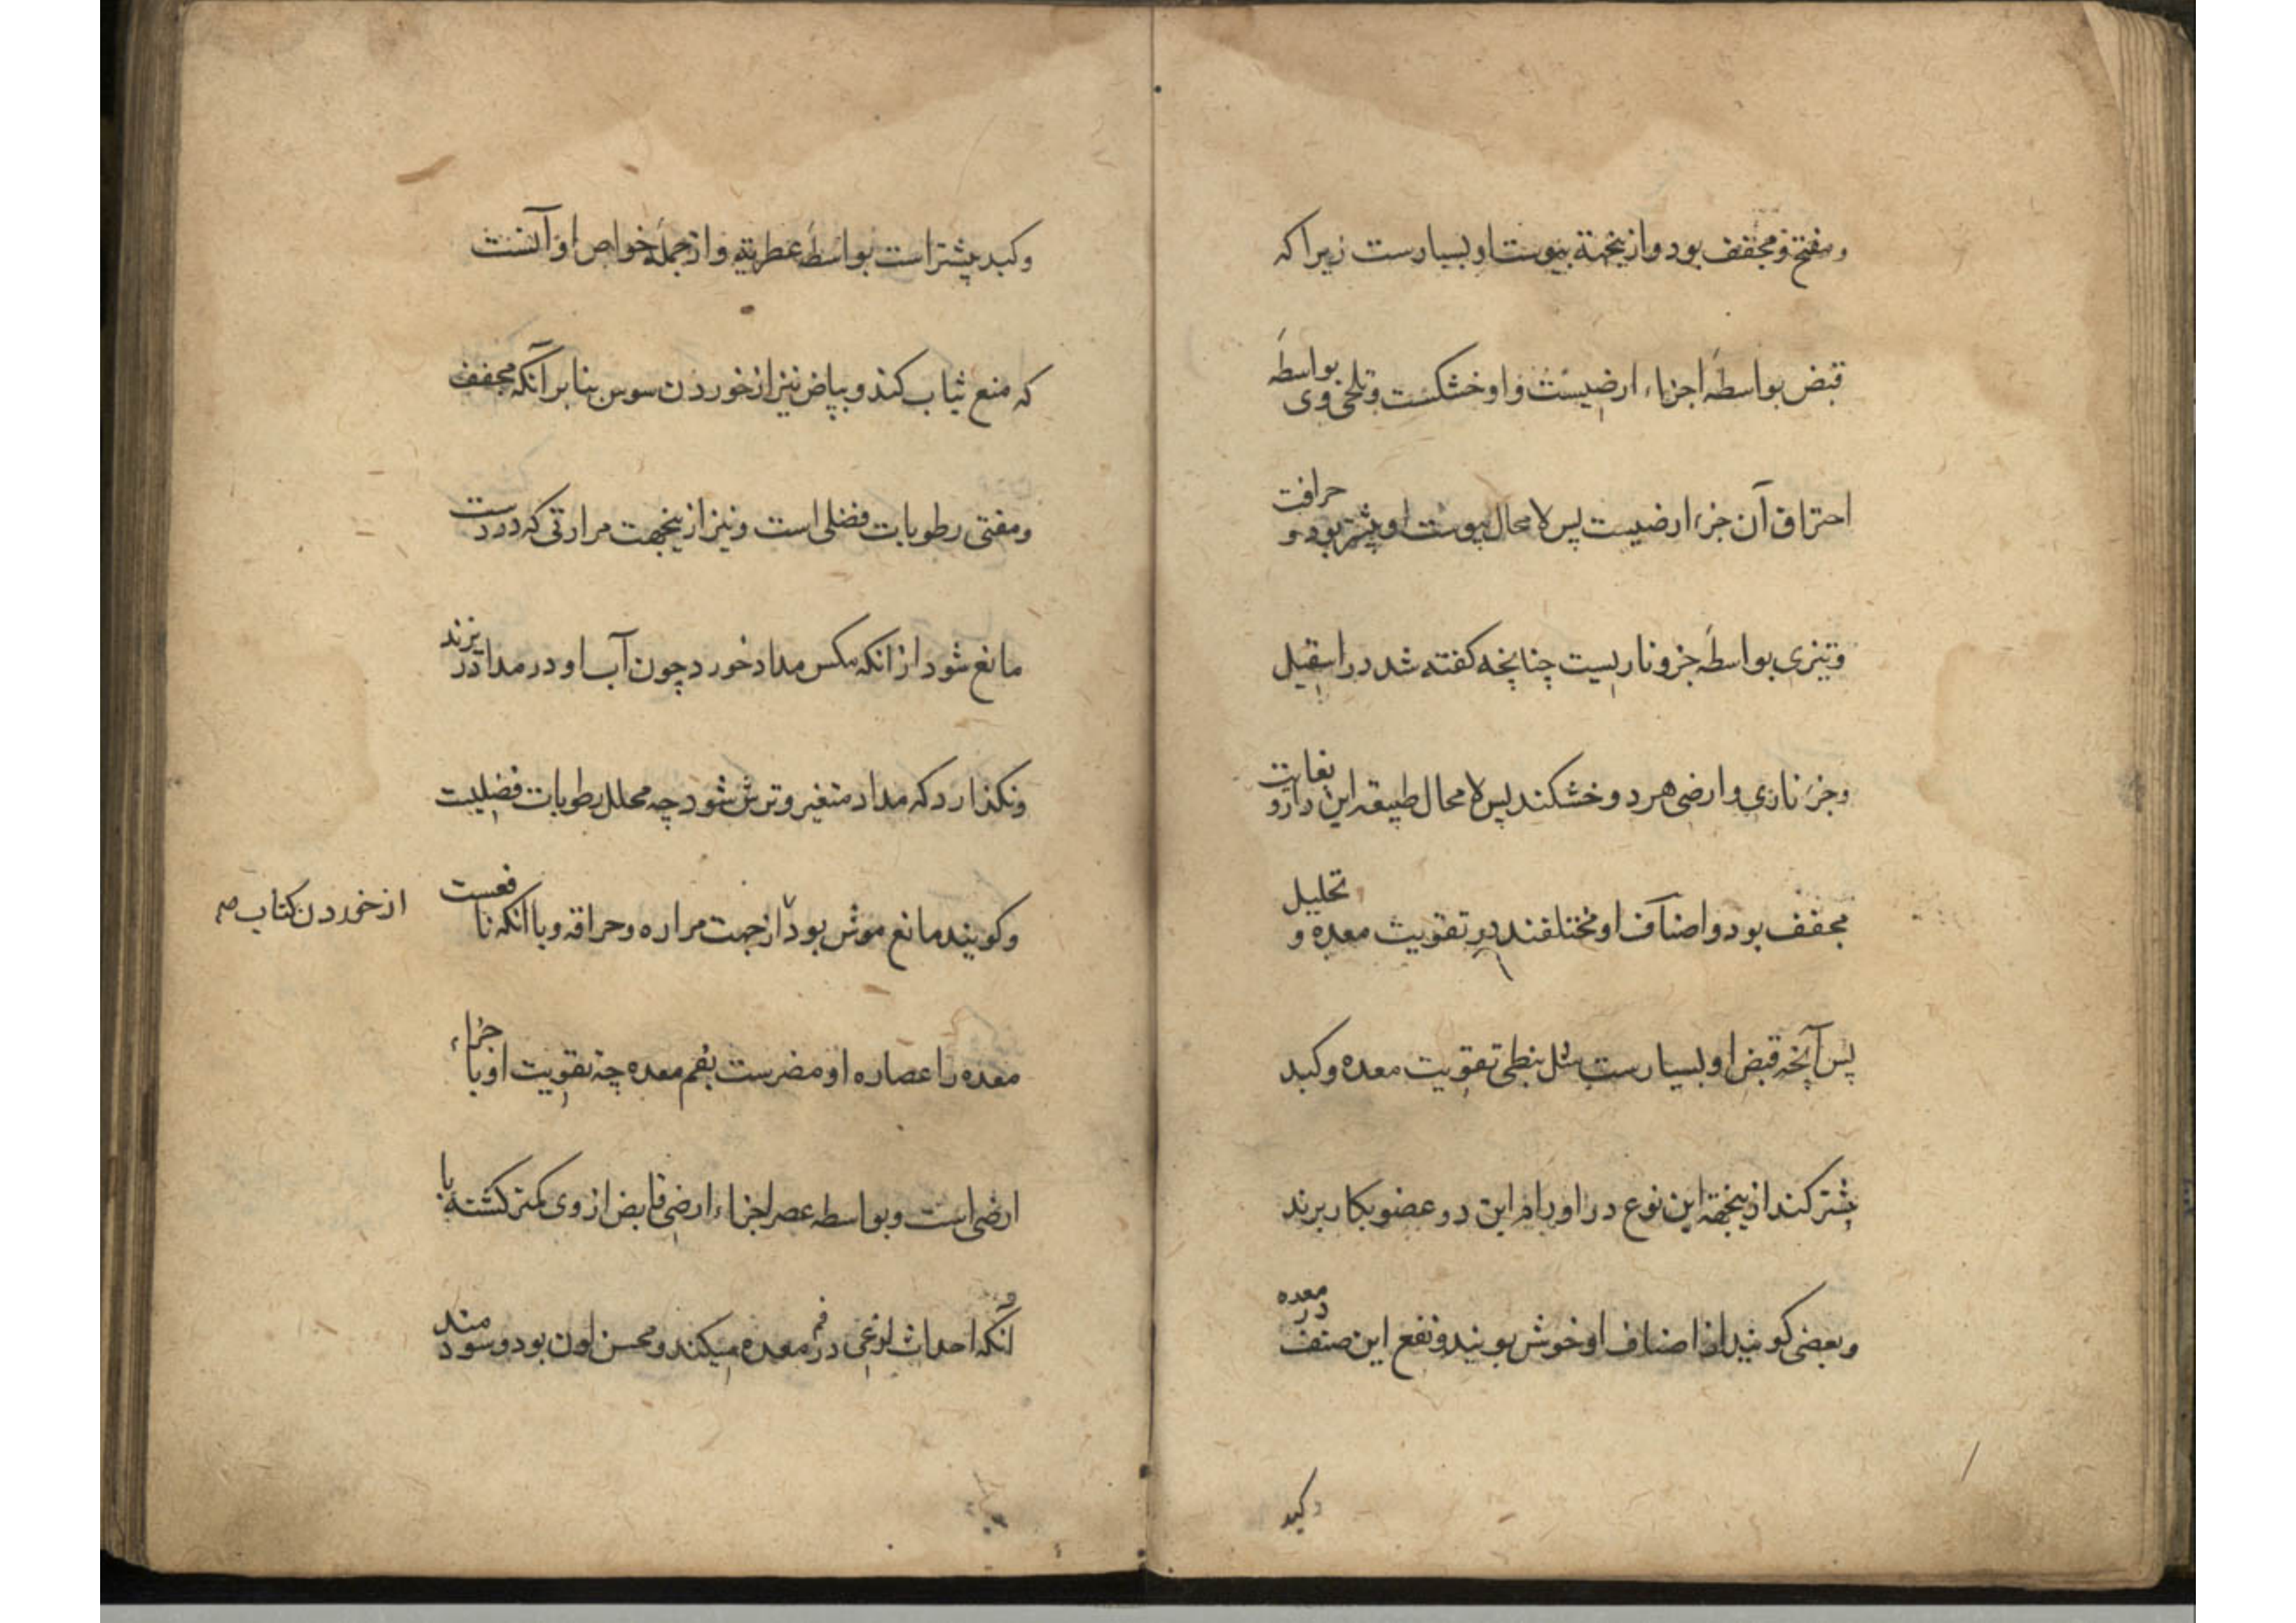 ومفتح ومجفف بود وازینجهة یبوست او بسیارست زیرا که
قبض بواسطهٔ اجزاء ارضیست واو خشکست وتلخی وی بواسطهٔ
احتراق آن جزء ارضیست پس لامحال یبوست او بیشتر بود و حرافت
وتیزی بواسطهٔ جزو ناریست چنانچه کفته شد در اسقیل
وجزء ناری وارضی هر دو خشکند پس لامحال طبیعة این دارو بغایت
مجفف بود واصناف او مختلفند در تقویت معده و تحلیل
پس آنچه قبض او بسیارست مثل نبطی تقویت معده وکبد
بیشتر کند ازینجهة این نوع در اورام این دو عضو بکار برند
وبعضی کویند از اصناف او خوش بویند ونفع این صنف در معده
وکبد
وکبد بیشتر است بواسطهٔ عطریة واز جملهٔ خواص او آنست
که منع ثیاب کند وبیاض نیز از خوردن سوس بنابر آنکه مجفف
ومفنی رطوبات فضلی است ونیز ازینجهت مرارتی که دروست
مانع شود از انکه مکس مداد خورد چون آب او در مداد ریزند
ونکذارد که مداد متغیر وترش شود چه محلل رطوبات فضلیست
وکویند مانع موش بود از جهت مراره وحراقه وبا انکه نافعست
از خوردن کتاب صح
معده را عصاره او مضرست بفم معده چه تقویت او با جزاء
ارضی است وبواسطه عصر اجزاء ارضی قابض از وی کمتر کشته با
آنکه احداث لذعی در فم معده میکند ومحسن لون بود وسودمند